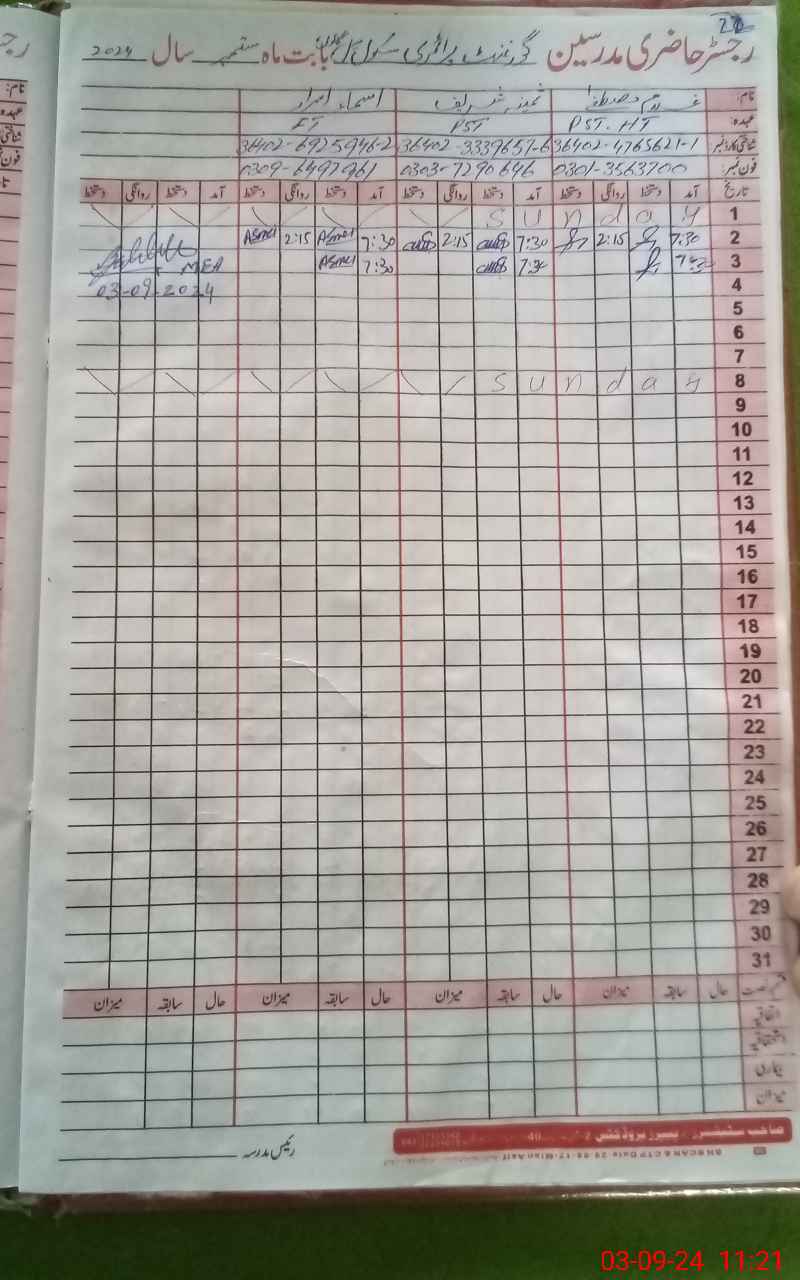 22
رجسٹر حاضری مدرسین گورنمنٹ پرائمری سکول بابت ماہ ستمبر سال 2024
نام: غلام مصطفیٰ ثمینہ شریف اسماء امداد
عہدہ: PST.HT PST
شناختی کارڈ نمبر 36402-4765621-1 36402-3339657-6 36402-6925946-2
فون نمبر: 0301-3563700 0303-7290646 0309-6497961
تاریخ آمد دستخط روانگی دستخط آمد دستخط روانگی دستخط آمد دستخط روانگی دستخط آمد دستخط روانگی دستخط
1 Sunday
2 7:30 2:15 7:30 2:15 7:30 Asma 2:15 Asma
3 7:30 7:30 7:30 Asma MEA
4 03-09-2024
5
6
7
8 Sunday
9
10
11
12
13
14
15
16
17
18
19
20
21
22
23
24
25
26
27
28
29
30
31
حال سابقہ میزان حال سابقہ میزان حال سابقہ میزان حال سابقہ میزان
اتفاقیہ
استحقاقیہ
بیماری
میزان
رئیس مدرسہ
03-09-24 11:21